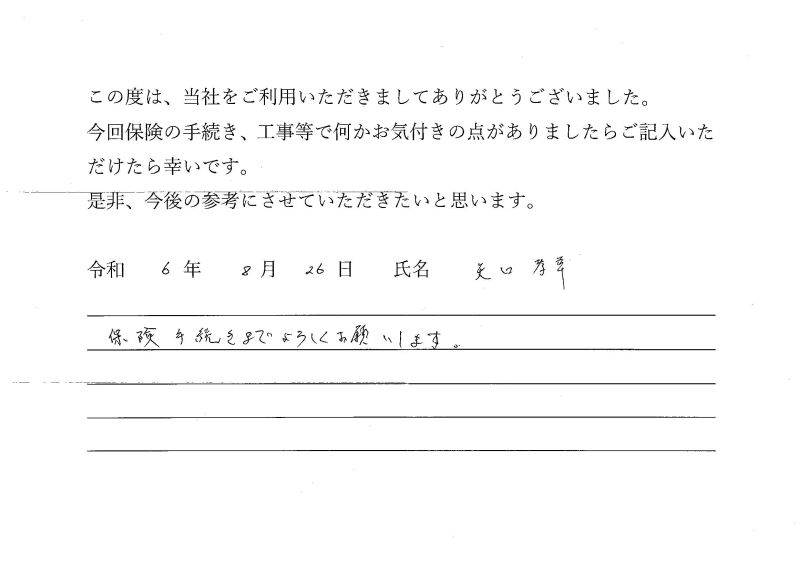 この度は、当社をご利用いただきましてありがとうございました。
今回保険の手続き、工事等で何かお気付きの点がありましたらご記入いた
だけたら幸いです。
是非、今後の参考にさせていただきたいと思います。
令和 6 年 8 月 26 日 氏名 矢口
保険手続きまでよろしくお願いします。